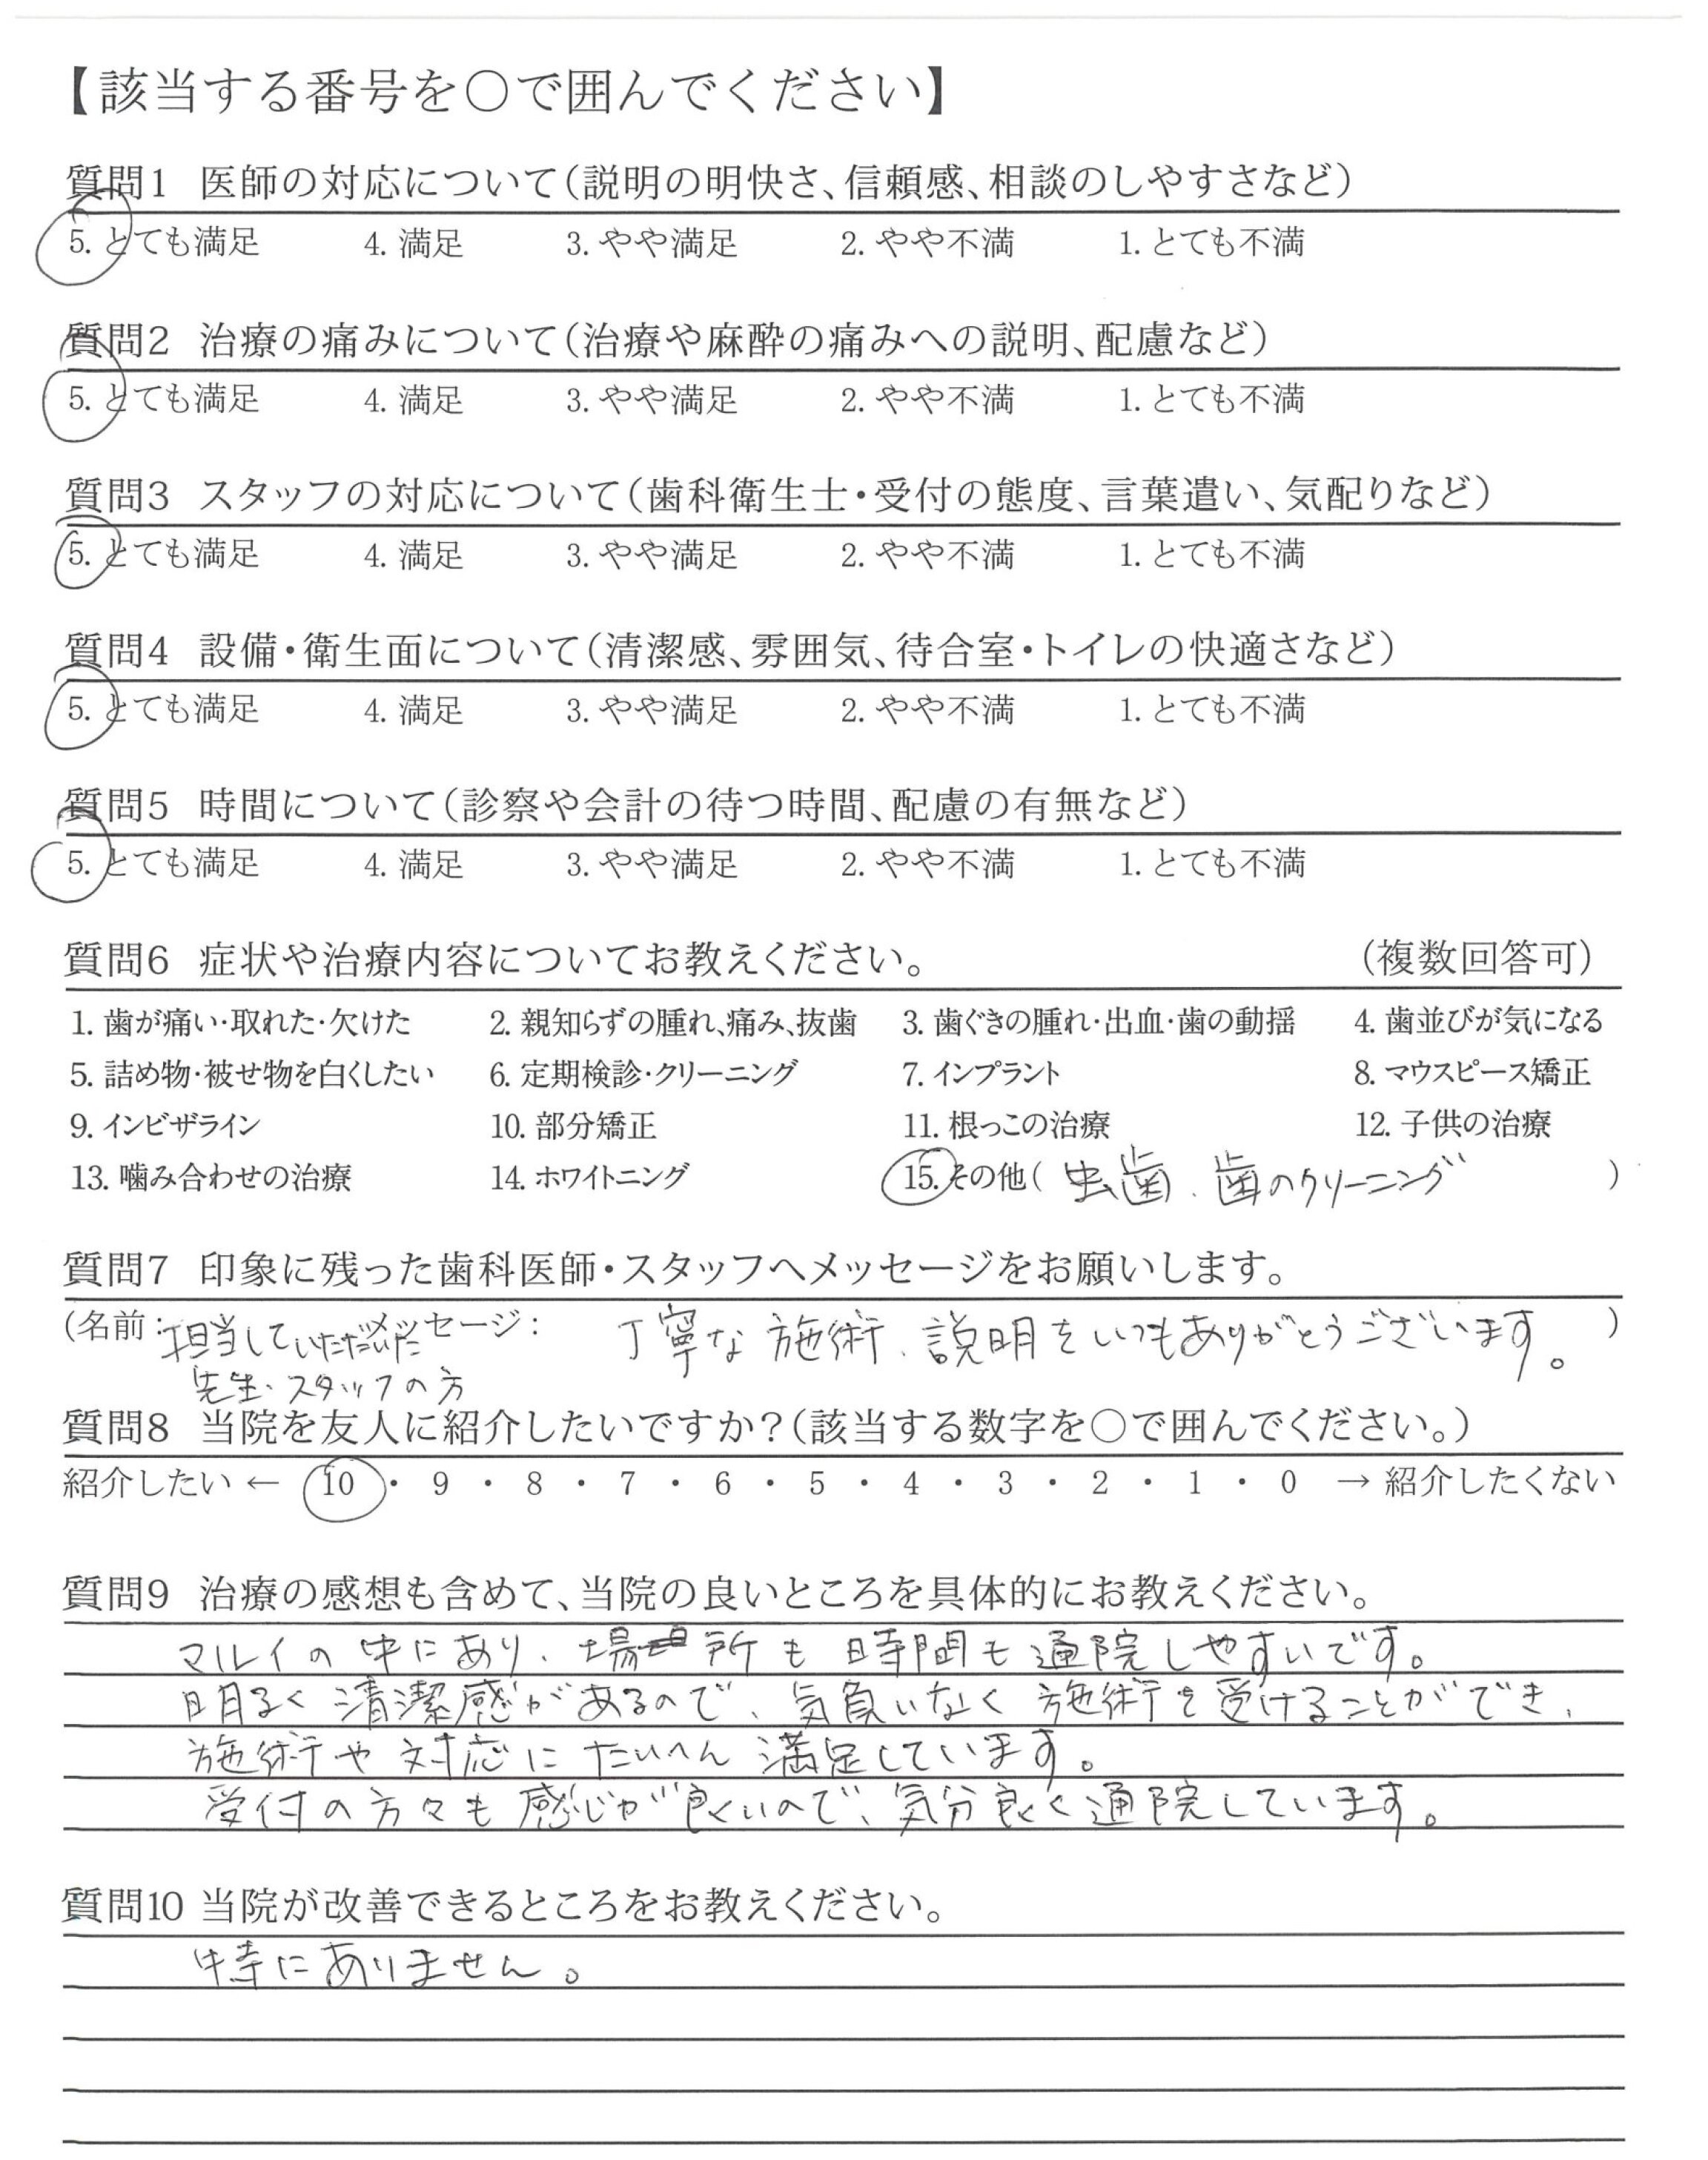 【該当する番号を○で囲んでください】
質問1 医師の対応について(説明の明快さ、信頼感、相談のしやすさなど)
5. とても満足 4. 満足 3. やや満足 2. やや不満 1. とても不満
質問2 治療の痛みについて(治療や麻酔の痛みへの説明、配慮など)
5. とても満足 4. 満足 3. やや満足 2. やや不満 1. とても不満
質問3 スタッフの対応について(歯科衛生士・受付の態度、言葉遣い、気配りなど)
5. とても満足 4. 満足 3. やや満足 2. やや不満 1. とても不満
質問4 設備・衛生面について(清潔感、雰囲気、待合室・トイレの快適さなど)
5. とても満足 4. 満足 3. やや満足 2. やや不満 1. とても不満
質問5 時間について(診察や会計の待つ時間、配慮の有無など)
5. とても満足 4. 満足 3. やや満足 2. やや不満 1. とても不満
質問6 症状や治療内容についてお教えください。 (複数回答可)
1. 歯が痛い・取れた・欠けた 2. 親知らずの腫れ、痛み、抜歯 3. 歯ぐきの腫れ・出血・歯の動揺 4. 歯並びが気になる
5. 詰め物・被せ物を白くしたい 6. 定期検診・クリーニング 7. インプラント 8. マウスピース矯正
9. インビザライン 10. 部分矯正 11. 根っこの治療 12. 子供の治療
13. 噛み合わせの治療 14. ホワイトニング 15. その他( 虫歯、歯のクリーニング )
質問7 印象に残った歯科医師・スタッフへメッセージをお願いします。
(名前: 担当していただいた メッセージ: 丁寧な施術、説明をいつもありがとうございます。 )
先生・スタッフの方
質問8 当院を友人に紹介したいですか?(該当する数字を○で囲んでください。)
紹介したい ← 10 ・ 9 ・ 8 ・ 7 ・ 6 ・ 5 ・ 4 ・ 3 ・ 2 ・ 1 ・ 0 → 紹介したくない
質問9 治療の感想も含めて、当院の良いところを具体的にお教えください。
マルイの中にあり、場所も時間も通院しやすいです。
明るく清潔感があるので、気負いなく施術を受けることができ、
施術や対応にたいへん満足しています。
受付の方々も感じが良いので、気分良く通院しています。
質問10 当院が改善できるところをお教えください。
特にありません。